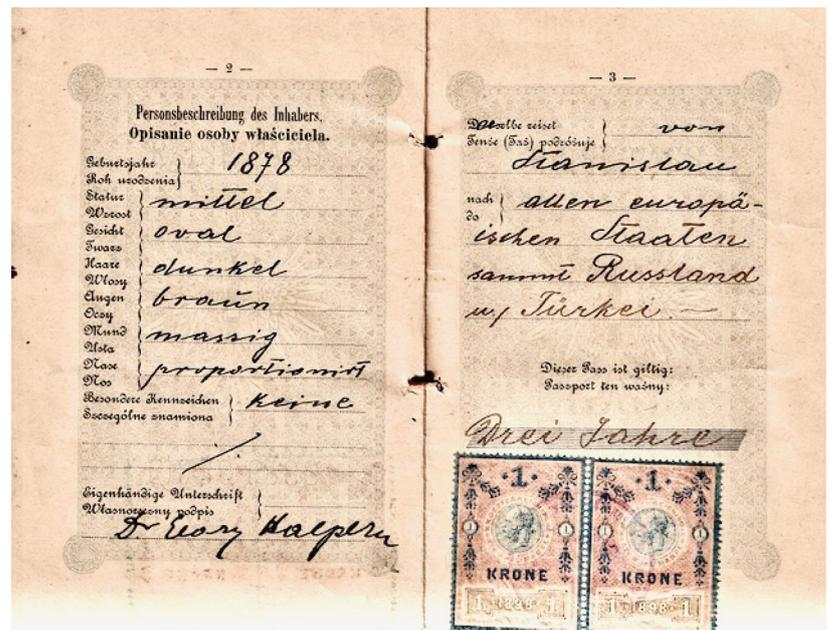 — 2 —
Personsbeschreibung des Inhabers.
Opisanie osoby właściciela.
Geburtsjahr
Rok urodzenia
1878
Statur
Wzrost
mittel
Gesicht
Twarz
oval
Haare
Włosy
dunkel
Augen
Oczy
braun
Mund
Usta
massig
Nase
Nos
proportionirt
Besondere Kennzeichen
Szczególne znamiona
keine
Eigenhändige Unterschrift
Własnoręczny podpis
Dr Halpern
— 3 —
Derselbe reiset
Tenże (Taż) podróżuje
von
Stanislau
nach
do
allen europä-
ischen Staaten
sammt Russland
u/ Türkei. —
Dieser Pass ist giltig:
Passport ten ważny:
Drei Jahre
1 1
KRONE KRONE
1 1898 1 1 1898 1